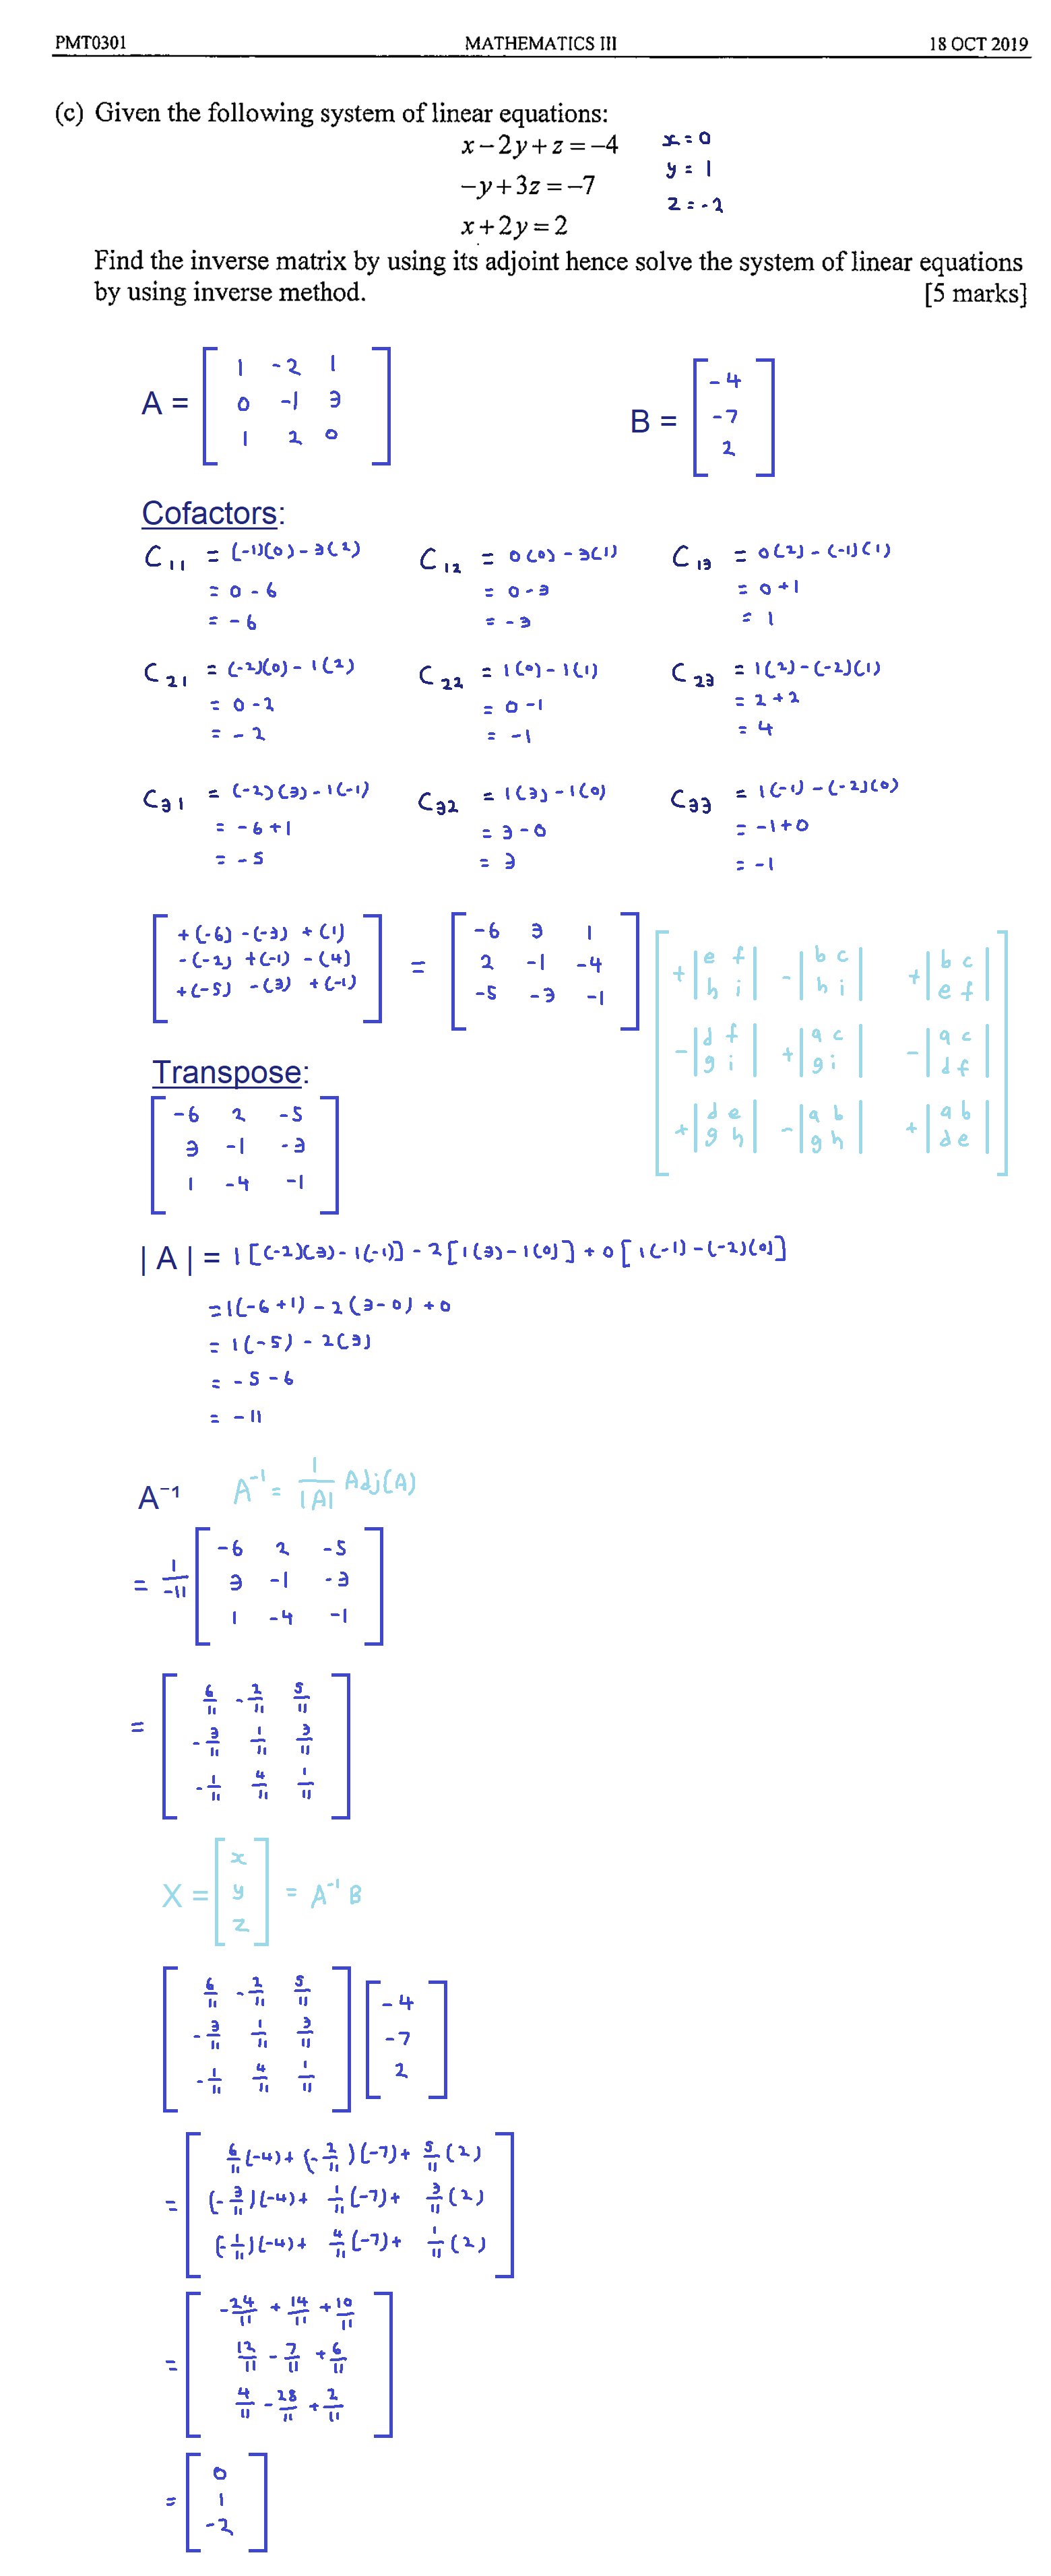 PMT0301 MATHEMATICS III 18 OCT 2019
(c) Given the following system of linear equations:
x−2y+z=−4 x=0
−y+3z=−7 y=1
x+2y=2 z=-2
Find the inverse matrix by using its adjoint hence solve the system of linear equations
by using inverse method. [5 marks]
A = [ 1 -2 1
0 -1 3
1 2 0 ]
B = [ -4
-7
2 ]
Cofactors:
C11 = (-1)(0)-3(2) C12 = 0(0)-3(1) C13 = 0(2)-(-1)(1)
= 0-6 = 0-3 = 0+1
= -6 = -3 = 1
C21 = (-2)(0)-1(2) C22 = 1(0)-1(1) C23 = 1(2)-(-2)(1)
= 0-2 = 0-1 = 2+2
= -2 = -1 = 4
C31 = (-2)(3)-1(-1) C32 = 1(3)-1(0) C33 = 1(-1)-(-2)(0)
= -6+1 = 3-0 = -1+0
= -5 = 3 = -1
[ +(-6) -(-3) +(1)
-(-2) +(-1) -(4)
+(-5) -(3) +(-1) ]
= [ -6 3 1
2 -1 -4
-5 -3 -1 ]
[ +|e f| -|b c| +|b c|
|h i| |h i| |e f|
-|d f| +|a c| -|a c|
|g i| |g i| |d f|
+|d e| -|a b| +|a b|
|g h| |g h| |d e| ]
Transpose:
[ -6 2 -5
3 -1 -3
1 -4 -1 ]
|A| = 1[(-2)(3)-1(-1)]-2[1(3)-1(0)]+0[1(-1)-(-2)(0)]
=1(-6+1)-2(3-0)+0
= 1(-5)-2(3)
= -5-6
= -11
A⁻¹ A⁻¹ = 1/|A| Adj(A)
= 1/-11 [ -6 2 -5
3 -1 -3
1 -4 -1 ]
= [ 6/11 -2/11 5/11
-3/11 1/11 3/11
-1/11 4/11 1/11 ]
X = [ x
y
z ] = A⁻¹B
[ 6/11 -2/11 5/11
-3/11 1/11 3/11
-1/11 4/11 1/11 ]
[ -4
-7
2 ]
= [ 6/11(-4)+(-2/11)(-7)+5/11(2)
(-3/11)(-4)+1/11(-7)+3/11(2)
(-1/11)(-4)+4/11(-7)+1/11(2) ]
= [ -24/11+14/11+10/11
12/11-7/11+6/11
4/11-28/11+2/11 ]
= [ 0
1
-2 ]